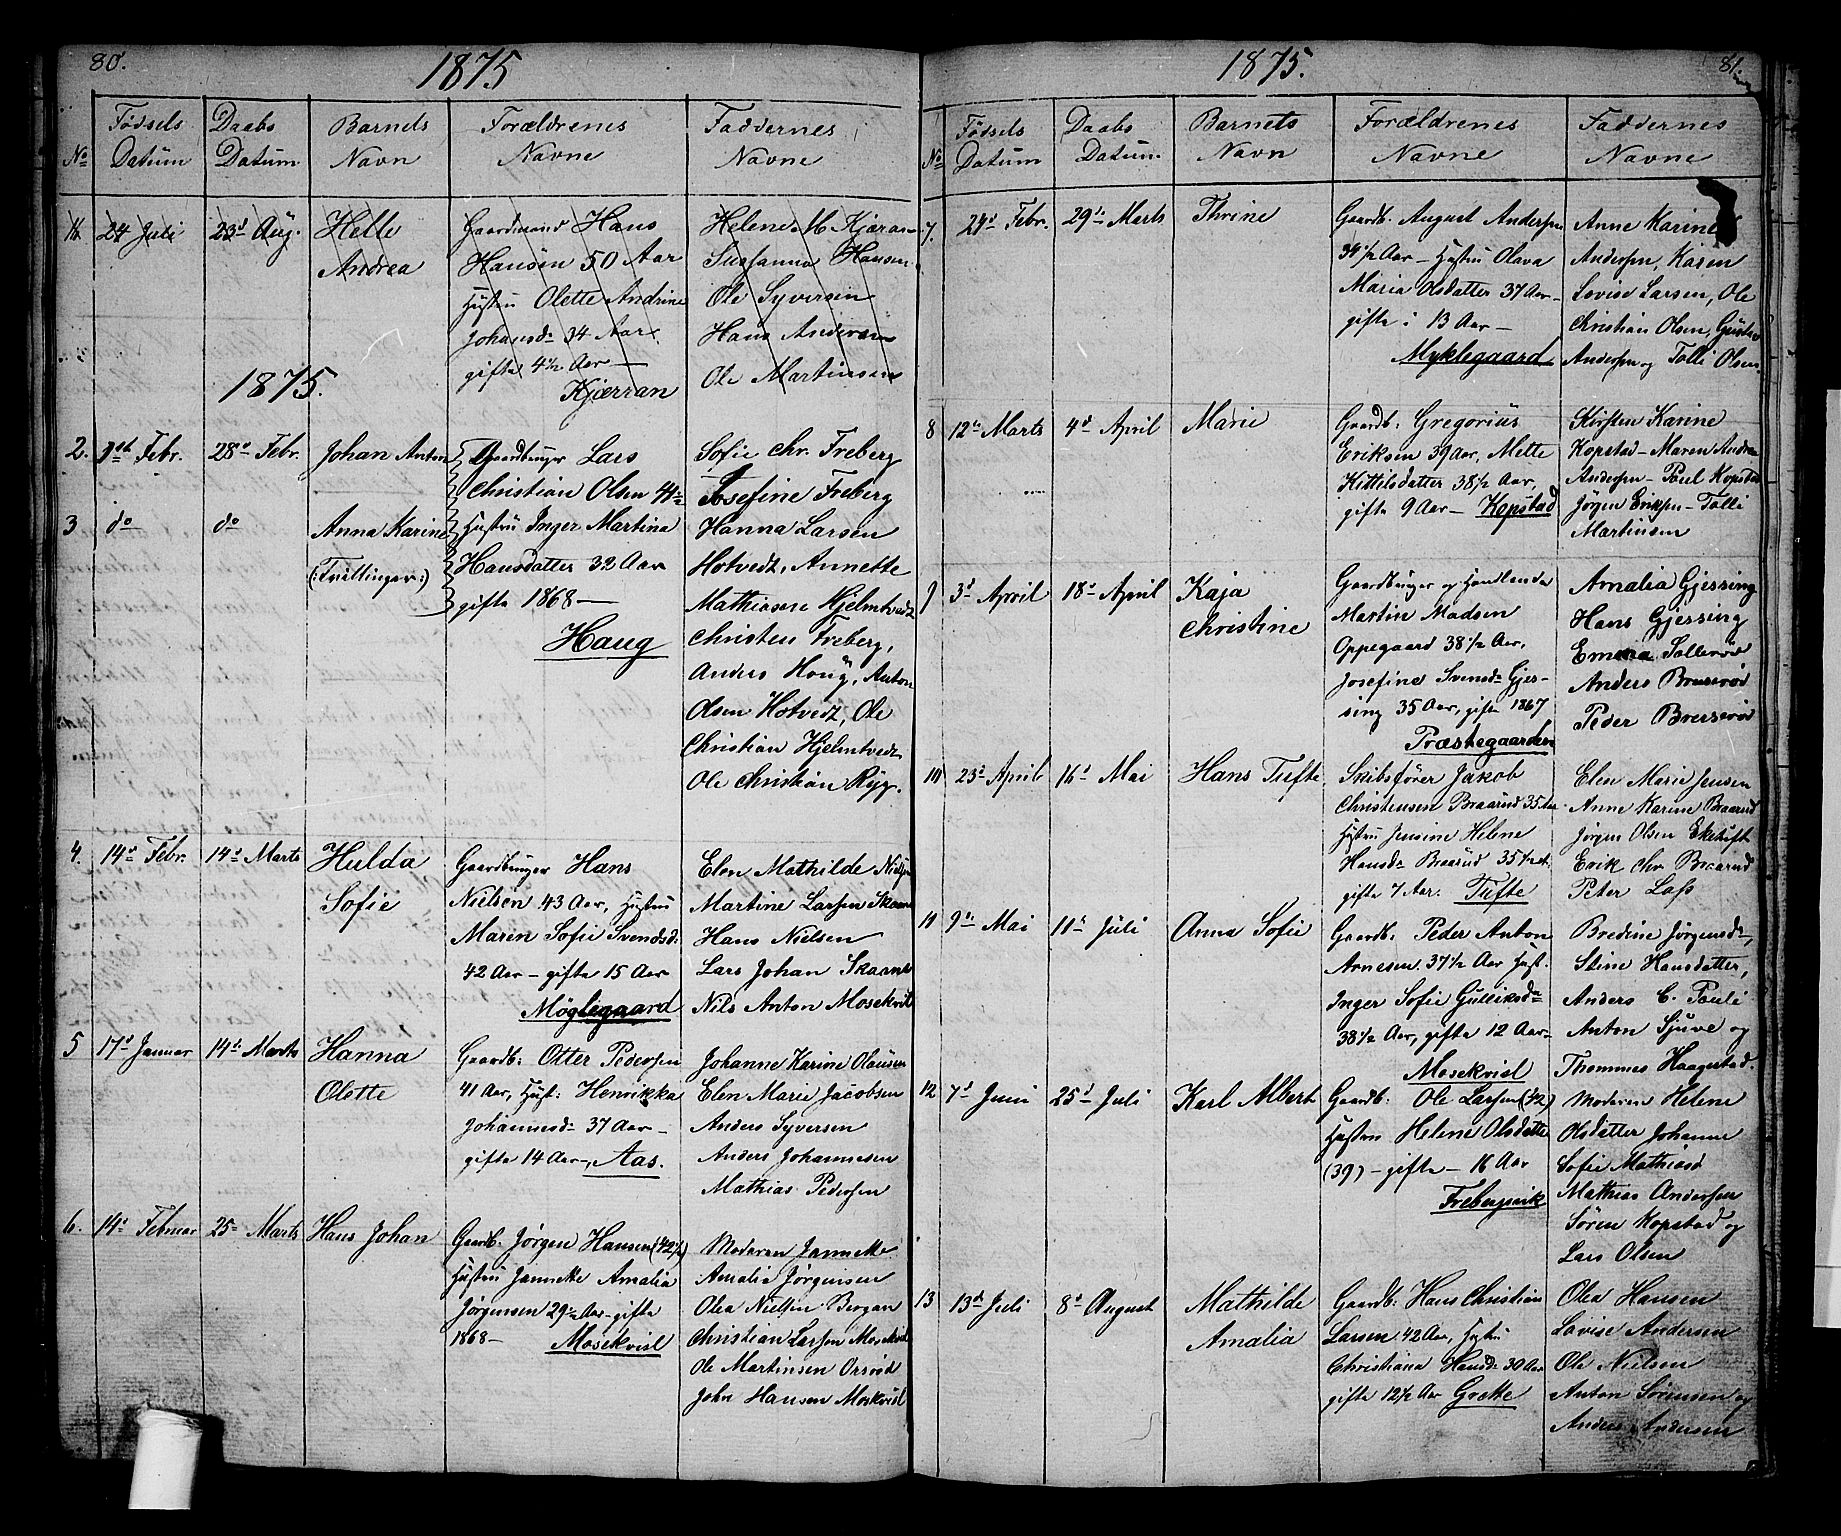 80.
1875
No
Fødsels Datum
Daabs Datum
Barnets Navn
Forældrenes Navne
Faddernes Navne
24 Juli
23d Aug.
Helle
Andrea
Gaardmand Hans
Hansen 50 Aar
Hustru Olette Andrine
Johansd 34 Aar
gifte 4½ Aar —
Kjærran
Helene M Kjæran
Sussanna Hansen
Ole Syversen
Hans Andersen
Ole Martinsen
1875.
2.
Febr.
28de Febr.
Johan Anton
3
do
do
Anna Karine
(:Tvillinger:)
Gaardbruger Lars
Christian Olsen 44
Hustru Inger Martina
Hansdatter 32 Aar
gifte 1868 —
Haug
Sofie Chr. Freberg
Josefine Freberg
Hanna Larsen
Hotvedt, Annette
Mathiasen Hjelmtvedt
Christen Freberg,
Anders Houg, Anton
Olsen Hotvedt, Ole
Christian Hjelmtvedt
Ole Christian Ryg.
4.
14d Febr.
14d Marts
Hulda
Sofie
Gaardbruger Hans
Nielsen 43 Aar, Hustru
Maren Sofie Svendsd:
42 Aar – gifte 15 Aar
Møglegaard
Elen Mathilde
Martine Larsen Skaane
Hans Nielsen
Lars Johan Skaane
Nils Anton Mosekvil
5
17d Januar
14d Marts
Hanna
Olette
Gaardb: Otter Pedersen
41 Aar, Hust: Henrikka
Johannesd 37 Aar –
gifte 14 Aar –, Aas.
Johanne Karine Olausen
Elen Marie Jacobsen
Anders Syversen
Anders Johannesen
Mathias Pedersen
6.
14d Februar
25 Marts
Hans Johan
Gaardb. Jørgen Hansen (42½)
Hustru Jannekke Amalia
Jørgensen 29½ Aar – gifte
1868 – Mosekvisl
Moderen Jannekke
Amalia Jørgensen
Olea Nielsen Bergan
Christian Larsen Mosekvisl
Ole Martinsen Orsrød
John Hansen Moskvisl
1875.
81.
No
Fødsels Datum
Daabs Datum.
Barnets Navn
Forældrenes Navne
Faddernes Navne
7.
24d Febr.
29de Marts
Thrine
Gaardb. August Andersen
34½ Aar – Hustru Olava
Maria Olsdatter 37 Aar –
gifte i 13 Aar –
Myklegaard
Anne Karine
Andersen, Karen
Lovise Larsen, Ole
Christian Olsen, Gustav
Andersen og Tolli Olsen
8
12te Marts
4d April
Marie
Gaardb: Gregorius
Eriksen 39 Aar, Mette
Kittilsdatter 38½ Aar,
gifte 9 Aar – Kopstad
Kirsten Karine
Kopstad – Maren Andrea
Andersen – Poul Kopstad
Jørgen Eriksen – Tolli
Martinsen
9
3d April
18d April
Kaja
Christine
Gaardbruger og Handlende
Martin Madsen
Oppegaard 38½ Aar,
Josefine Svensd Gjes-
sing 35 Aar, gifte 1867
Præstegaarden
Amalia Gjessing
Hans Gjessing
Emma Sollerød
Anders Brserød
Peder Breserød
10
23d April
16d Mai
Hans Tufte
Skibsfører Jakob
Christensen Braarud 35 Aar
Hustru Jensine Helene
Hansd Braarud 35½ A.
gifte 7 Aar. Tufte
Elen Marie Jensen
Anne Karine Braarud
Jørgen Olsen Eketuft
Erik Chr. Braarud
Peter Lass
11
9de Mai
11te Juli
Anna Sofie
Gaardb: Peder Anton
Arnesen 37½ Aar Hust.
Inger Sofie Gulliksd
38½ Aar, gifte 12 Aar –
Mosekvisl
Bredine Jørgensd,
Stine Hansdatter,
Anders C. Pauli
Anton Sjuve og
Thommes Haagestad.
12
7d Juni
25d Juli
Karl Albert
Gaardb: Ole Larsen (42)
Hustru Helene Olsdatter
(39) – gifte – 16 Aar
Frebergsvik
Moderen Helene
Olsdatter Johanne
Sofie Mathiasd
Mathias Andersen
Søren Kopstad og
Lars Olsen
13
13d Juli
8d August
Mathilde
Amalia
Gaardb: Hans Christian
Larsen 42 Aar, Hustru
Christiana Hansd 30 Aar
gifte 12½ Aar Grette
Olea Hansen
Lovise Andersen
Ole Nielsen
Anton Sørensen og
Anders Andersen